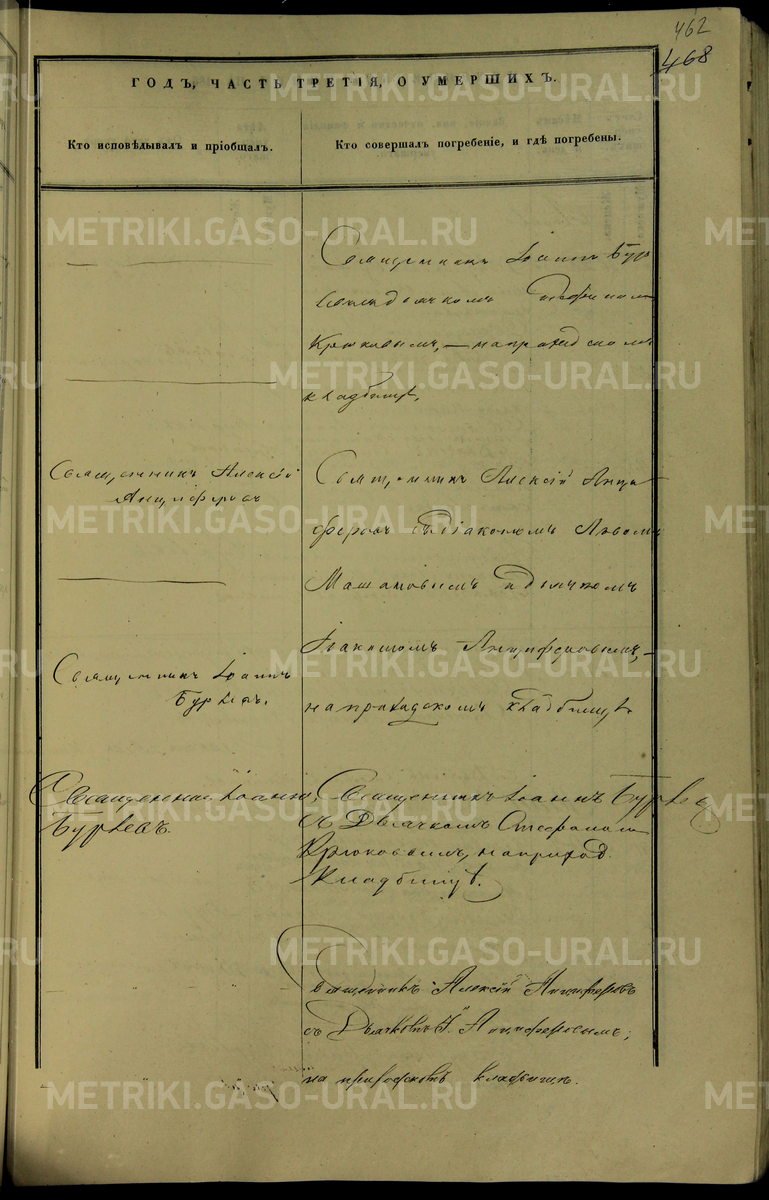 462
468
ГОДЪ, ЧАСТЬ ТРЕТІЯ, О УМЕРШИХЪ.
Кто исповѣдывалъ и пріобщалъ.
Кто совершалъ погребеніе, и гдѣ погребены.
Священникъ Іоаннъ Бур
Крюковымъ, — на приходскомъ
кладбищѣ,
Священникъ Алексій
Анциферовъ
Священникъ Алексій Анци
феровъ съ Діакономъ Львомъ
Машановымъ и дьячкомъ
Іоакимомъ Анциферовымъ, —
на приходскомъ кладбищѣ
Священникъ Іоаннъ
Бурлевъ.
Священникъ Іоаннъ
Бурлевъ.
Священникъ Іоаннъ Бурлев
съ Дьячкомъ Стефаномъ
Крюковымъ, на приход.
кладбищѣ.
Священникъ Алексій Анциферовъ
съ Дьячкомъ І. Анциферовымъ;
на приходскомъ кладбищѣ.
METRIKI.GASO-URAL.RU